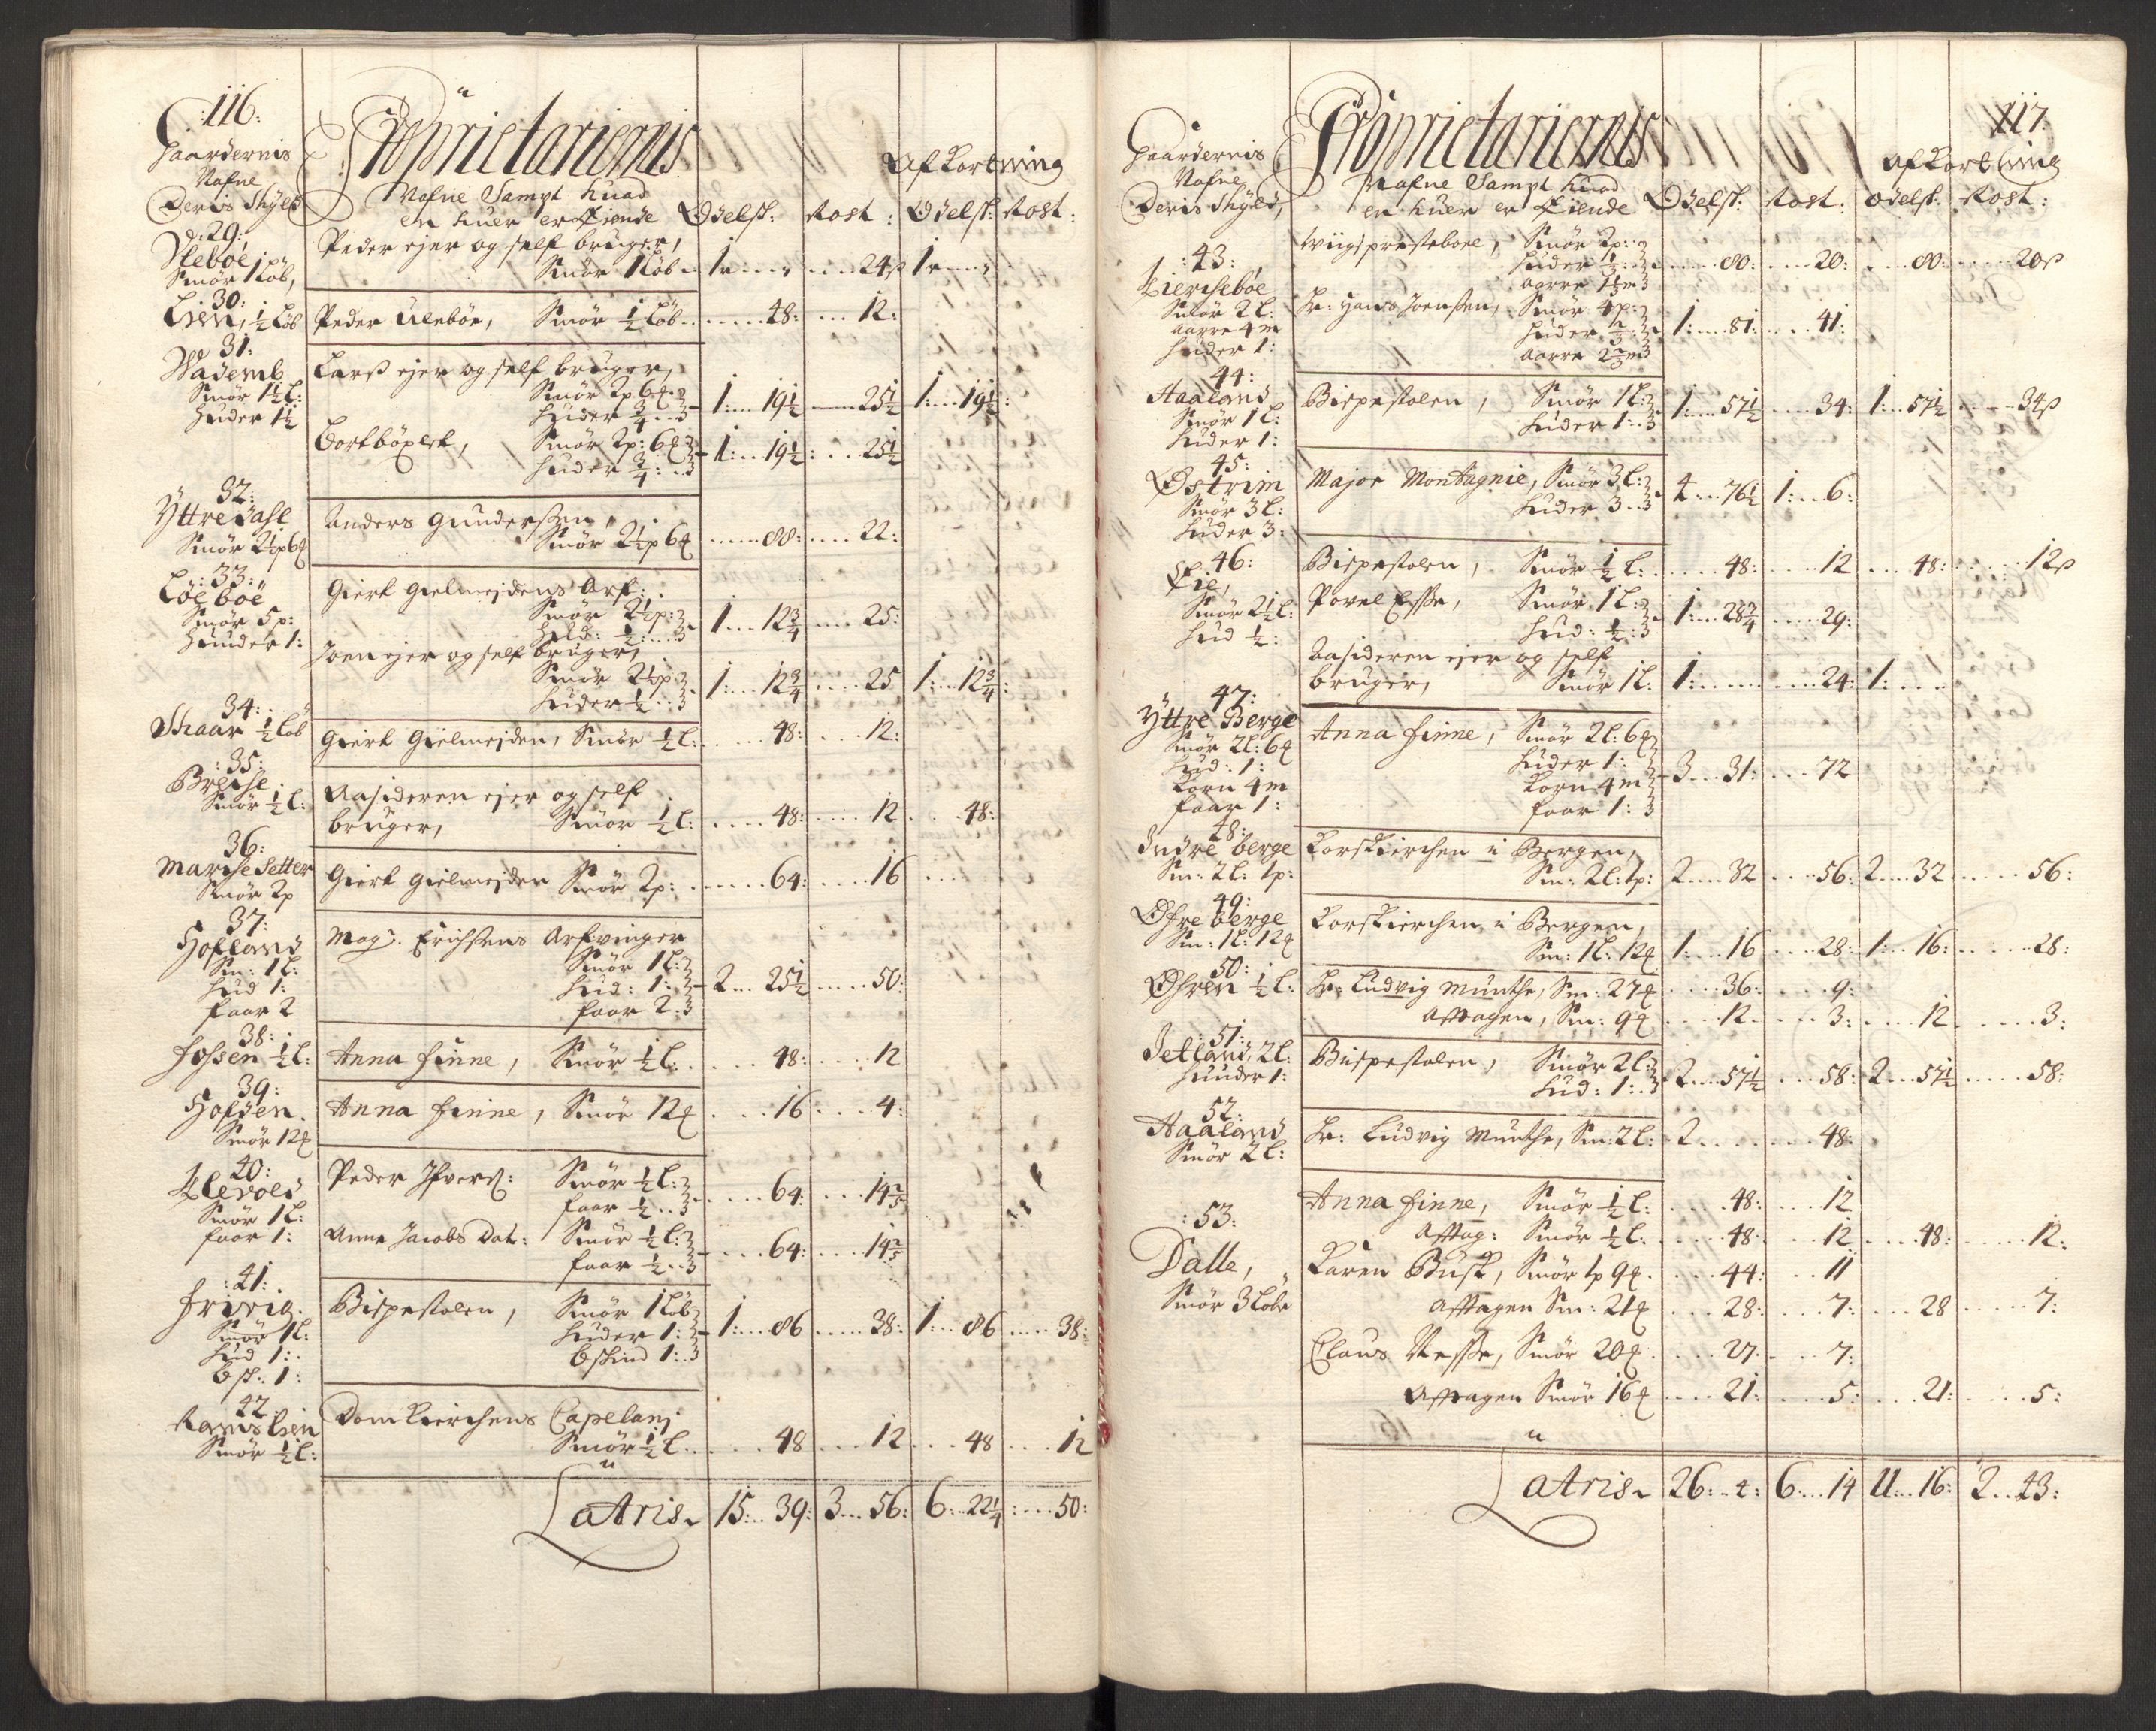 :116:
Gaardernis
Nafne
Deris Skyld
Proprietariernis
Nafne Sampt huad
en huer er Eiende
Afkortning
Odelsk: Rost: Odelsk: Rost:
:29:
Uleböe
Smör 1 Löb,
Peder ejer og self bruger,
Smör 1 Löb .. 1r ... 24ß 1r
30:
Lien, ½ Löb Peder Uleböe, Smör ½ Löb .... 48: ... 12:
31:
Wademb
Smör 1½ L:
Huder 1½
Larß ejer og self bruger,
Smör 2p 6
Huder ¾ 1: ... 19½ ... 25½ 1: ... 19½:
Smör 2p: 6
Huder ¾ 1: ... 19½: ... 25½
32:
Yttredahl
Smör 2½p 6
Anders Gunderßen,
Smör 2½p 6 ..... 88: .... 22:
:33:
Löeböe
Smör 5p:
Huuder 1:
Giert Gielmejdens Arf:
Smör 2½p:
Hud: ½: 1 ... 12¾ .... 25:
Joen ejer og self bruger,
Smör 2½p:
Huder ½ 1: ... 12¾ .... 25 1: ... 12¾:
34:
Skaar ½ Löb Giert Gielmejden, Smör ½ L: .... 48: ... 12:
:35:
Smör ½ L:
Aasideren ejer og self
bruger, Smör ½ L: .... 48: .... 12 ... 48:
36:
Mariße Setter
Smör 2p
Giert Gielmejden Smör 2p: ..... 64: .... 16
37:
Hofland
Sm: 1 L:
Hud 1:
faar 2
Mag: Erichßens Arfvinger
Smör 1 L:
Hud: 1:
faar 2 2 ... 25½ .... 50:
38:
Foßen ½ L: Anna Finne, Smör ½ L: .... 48: .... 12
39:
Hofden.
Smör 12
Anna Finne, Smör 12 ... 16 ... 4:
40:
Smör 1 L:
faar 1:
Peder Ifvers: Smör ½ L:
faar ½ .... 64: ... 14⅖
Anne Jacobs Dat: Smör ½ L:
faar ½ .... 64: ... 14⅖
:41:
Smör 1 L:
Hud 1:
bsk: 1:
Bispestolen, Smör 1 Löb
Huder 1:
bskind 1: 1: ... 86 .... 38: 1: ... 86 .... 38:
42
Ramslien
Smör ½ L:
Domkierchens Capelani
Smör ½ L .... 48 ... 12 ... 48 ... 12
Latris 15: .. 39: 3 ... 56: 6: .. 22¼: ... 50:
117.
Gaardernis
Nafne
Deris Skyld,
Proprietariernis
Nafne Sampt huad
en huer er Eiende
Afkortning
Odelsk: Rost: odelsk: Rost:
:43:
Smör 2 L:
aarre 4 m
Huder 1:
Wiigs præstebore, Smör 2p:
Huder ⅓:
aarre 1⅓ m ..... 80: .... 20: .... 80: .... 20ß
Hr: Hans Joenßen, Smör 4p:
Huder ⅔:
aarre 2⅔ m 1: ... 81: .... 41:
44:
Haaland
Smör 1 L:
Huder 1:
Bispestolen, Smör 1 L:
Huder 1: 1: ... 57½ .... 34: 1: ... 57½ .... 34ß
45:
Østrim
Smör 3 L:
Huder 3:
Major Montagnie, Smör 3 L:
Huder 3 4 ... 76½ 1: ... 6:
46:
Smör 2½ L:
Hud ½:
Bispestolen, Smör ½ L: .... 48: .... 12 ... 48: .... 12ß
Povel Eßße, Smör 1 L:
Hud: ½: 1: ... 28¾ .... 29:
Aasideren ejer og self
bruger, Smör 1 L: 1: ...... 24: 1: ...
47:
Yttre Berge
Smör 2 L: 6
Hud: 1:
Korn 4 m
faar 1:
Anna Finne, Smör 2 L: 6
Huder 1:
Korn 4 m
faar 1: 3 ... 31: ... 72
48:
Indre berge
Sm: 2 L: 1p:
Korskierchen i Bergen,
Sm: 2 L: 1p: 2 ... 32 .... 56: 2 ... 32 ..... 56:
49:
Øfre berge
Sm: 1 L: 12
Korskierchen i Bergen,
Sm: 1 L: 12 1: ... 16 .... 28: 1: ... 16: ..... 28:
50:
Øfren ½ L: Hr: Ludvig Munthe, Sm: 27 .... 36: .... 9:
Afftagen, Sm: 9 .... 12 .... 3: .... 12 ..... 3:
:51:
Jetland, 2 L:
Huuder 1:
Bispestolen, Smör 2 L:
Hud: 1: 2 ... 57½ ... 58: 2 ... 57½ ..... 58:
52:
Haaland
Smör 2 L:
Hr: Ludvig Munthe, Sm: 2 L: 2 ....... 48:
:53:
Dalle,
Smör 3 Löbe
Anna Finne, Smör ½ L: .... 48: .... 12
Afftag: Smör ½ L .... 48: ... 12 .... 48: ..... 12:
Karen Busk, Smör 1p 9 .... 44: ... 11
Afftagen Sm: 21 .... 28: ... 7: ... 28 ..... 7:
Claus Neßße, Smör 20 .... 27: ... 7:
Afftagen Smör 16 .... 21: .... 5: ... 21: ..... 5:
Latris 26: .. 4: 6: ... 14 11: .. 16: 2 .. 43: